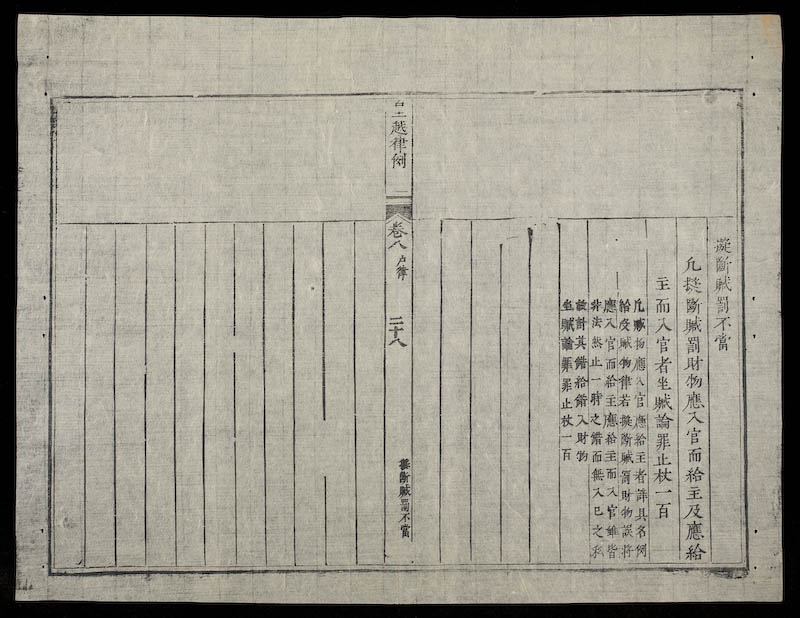 擬斷贓罰不當
凡擬斷贓罰財物應入官而給主及應給
主而入官者坐贓論罪止杖一百
凡贓物應入官應給主者詳具名例
給沒贓物律若擬斷贓罰財物誤將
應入官而給主應給主而入官雖皆
非法然止一時之錯而無入己之私
故計其錯給錯入財物
坐贓論罪罪止杖一百
皇越律例
卷八
戶律
二十八
擬斷贓罰不當